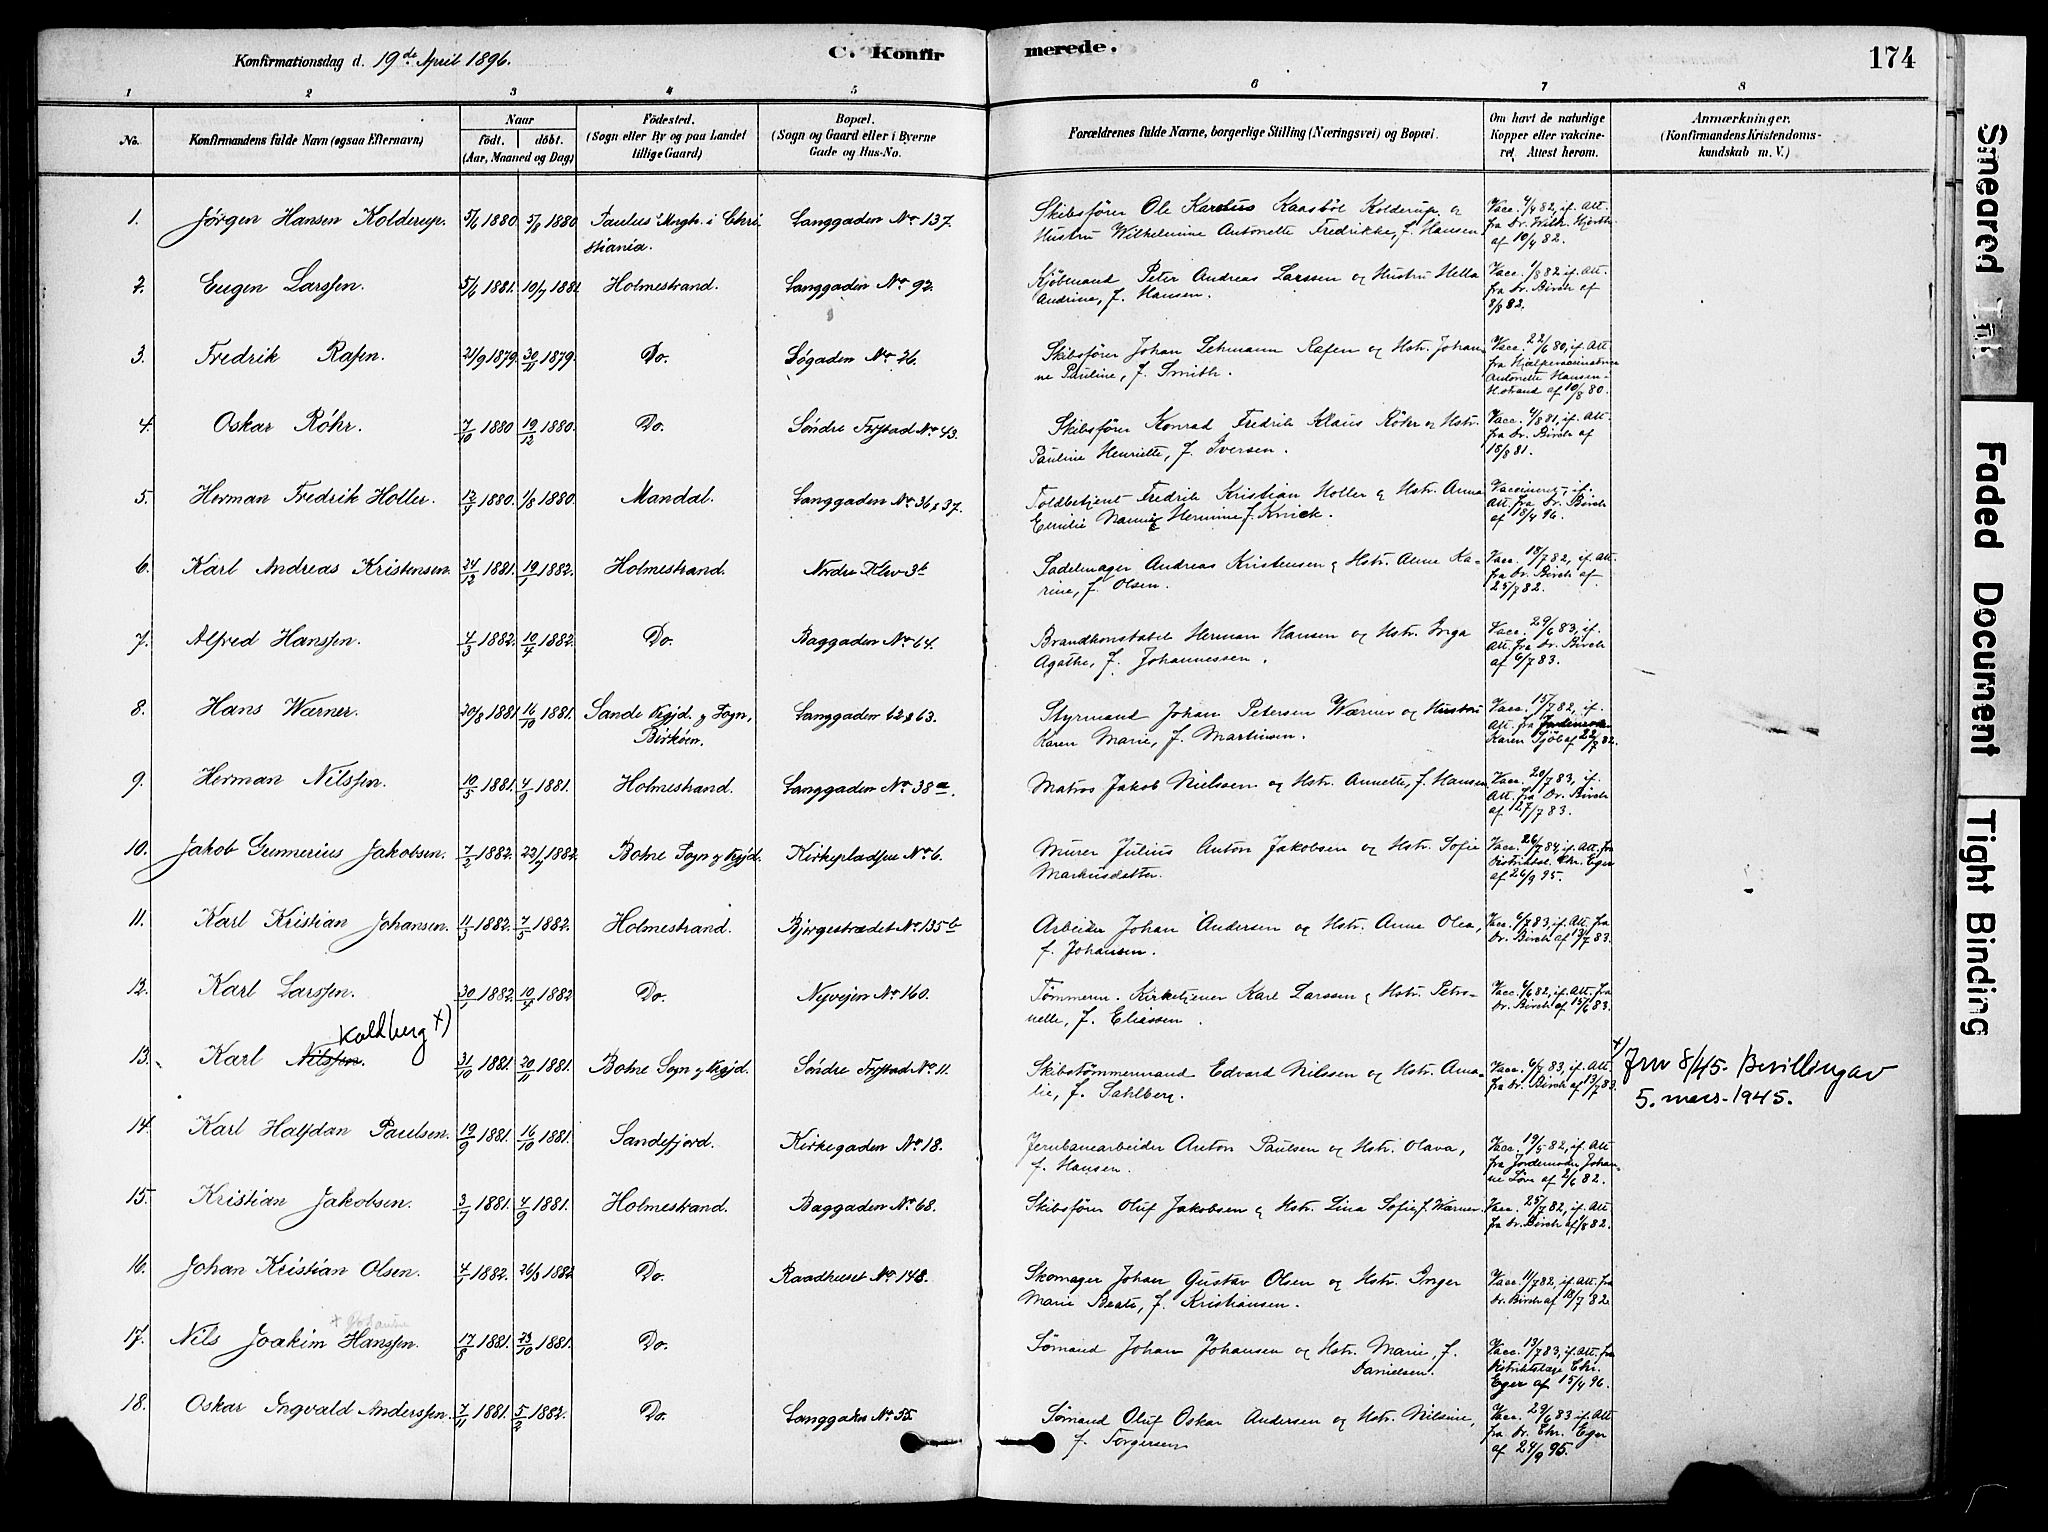 Konfirmationsdag d. 19de April 1896.
C. Konfirmerede.
174
1 2 3 4 5 6 7 8
No.
Konfirmandens fulde Navn (ogsaa Efternavn)
Naar
födt. döbt.
(Aar, Maaned og Dag)
Födested.
(Sogn eller By og paa Landet
tillige Gaard)
Bopæl.
(Sogn og Gaard eller i Byerne
Gade og Hus-No.
Forældrenes fulde Navne, borgerlige Stilling (Næringsvei) og Bopæl.
Om havt de naturlige
Kopper eller vakcine-
ret, Attest herom.
Anmærkninger.
(Konfirmandens Kristendoms-
kundskab m. V.)
1. Jørgen Hansen Kolderup. 5/6 1880 5/9 1880 Paulus Mngh. i Chri-
stiania. Langgaden No 137. Skibsfører Ole Karelius Kaasbøl Kolderup og
Hustru Wilhelmine Antonette Fredrikke, f. Hansen Vacc. 4/4 82, if. Att.
fra Dr. Wilh. Hjorth
af 10/4 82.
2. Eugen Larssen. 5/6 1881. 10/7 1881. Holmestrand. Langgaden No 92. Kjøbmand Peter Andreas Larssen og Hustru Hella
Andrine, f. Hansen. Vacc. 1/8 82 if. Att.
fra Dr. Birch af
8/8 82.
3. Fredrik Rafen. 21/9 1879. 30/11 1879. Do. Søgaden No 26. Skibsfører Johan Lehmann Rafen og Hstr. Johan-
ne Pauline, f. Smith. Vacc. 22/6 80, if. Att.
fra Hjælpevaccinatricen
Antonette Hansen-
H.strand af 10/8 80.
4. Oskar Röhr. 7/10 1880 19/12 1880. Do. Søndre Frystad No 43. Skibsfører Konrad Fredrik Klaus Röhr og Hstr.
Pauline Henriette, f. Iversen. Vacc. 4/8 81, if. Att.
fra Dr. Birch af
18/8 81.
5. Herman Fredrik Holler. 12/4 1880. 1/8 1880. Mandal. Langgaden No 36 & 37. Toldbetjent Fredrik Kristian Holler og Hstr. Anna
Emilie Nannie Hermine f. Knick. Vaccineret, if.
Att. fra Dr. Birch
af 18/4 96.
6. Karl Andreas Kristensen. 24/12 1881. 19/1 1882. Holmestrand. Nordre Klev 3b Sadelmager Andreas Kristensen og Hstr. Anne Ka-
rine, f. Olsen. Vacc. 18/7 82, if. Att.
fra Dr. Birch af
25/7 82.
7. Alfred Hanssen. 4/3 1882. 10/4 1882. Do. Baggaden No 64. Brandkonstabel Herman Hansen og Hstr. Inga
Agathe, f. Johannessen. Vacc. 29/6 83, if.
Att. fra Dr. Birch
af 6/7 83.
8. Hans Wærner. 20/8 1881 16/10 1881. Sande Prgjd. og Sogn,
Birkøen. Langgaden 62 & 63. Styrmand Johan Petersen Wærner og Hustru
Karen Marie, f. Martinsen. Vacc. 15/7 82, if.
Att. fra Jordemoder
Karen Sjöb af 22/7 82.
9. Herman Nilssen. 10/5 1881. 4/9 1881. Holmestrand. Langgaden No 38a. Matros Jakob Nielssen og Hstr. Annette, f. Hansen Vacc. 20/7 83, if.
Att. fra Dr. Birch
af 27/7 83.
10. Jakob Gunnerius Jakobsen. 7/2 1882. 23/7 1882. Botne Sogn og Prgjd. Kirkepladsen No 6. Murer Julius Anton Jakobsen og Hstr. Sofie
Markusdatter. Vacc. 26/7 84, if. Att. fra
Distriktsl. Chr. Eger
af 26/9 95.
11. Karl Kristian Johansen. 11/3 1882. 7/5 1882. Holmestrand. Bjørgestrædet No 135b Arbeider Johan Andersen og Hstr. Anne Olea,
f. Johansen. Vacc. 6/7 83, if. Att. fra
Dr. Birch af 13/7 83.
12. Karl Larssen. 30/1 1882. 10/4 1882 Do. Nyvejen No 160. Tømmerm. Kirketjener Karl Larssen og Hstr. Petro-
nelle, f. Eliassen. Vacc. 4/6 82, if. Att. fra
Dr. Birch af 15/6 83.
Kaldberg +)
13. Karl Nilssen. 31/10 1881. 20/11 1881. Botne Sogn og Prgjd. Søndre Frystad No 11. Skibstømmermand Edvard Nilssen og Hstr. Ama-
lie, f. Sahlberg. Vacc. 6/7 83, if. Att.
fra Dr. Birch af 13/7 83. +) Jnr 8/45. Bevilling av
5. mars. 1945.
14. Karl Halfdan Paulsen. 19/9 1881. 16/10 1881. Sandefjord. Kirkegaden No 18. Jernbanearbeider Anton Paulsen og Hstr. Olava,
f. Hansen. Vacc. 19/5 82, if. Att.
fra Jordemoder Johan-
ne Løve af 2/6 82.
15. Kristian Jakobsen. 3/7 1881. 4/9 1881. Holmestrand. Baggaden No 68. Skibsfører Oluf Jakobsen og Hstr. Lina Sofie f. Wærner. Vacc. 25/7 82, if. Att.
fra Dr. Birch af 1/8 82.
16. Johan Kristian Olsen. 4/1 1882. 26/3 1882 Do. Raadhuset No 148. Skomager Johan Gustav Olsen og Hstr. Inger
Marie Beate, f. Kristiansen. Vacc. 11/7 82, if. Att. fra
Dr. Birch af 18/7 82.
+ Johansen
17. Nils Joakim Hanssen. 17/8 1881. 23/10 1881. Do. Sømand Johan Johansen og Hstr. Marie, f.
Danielsen. Vacc. 13/7 83, if. Att. fra
Distriktslæge Chr.
Eger af 15/4 96.
18. Oskar Ingvald Anderssen. 7/11 1881. 5/2 1882. Do. Langgaden No 55. Sømand Oluf Oskar Andersen og Hstr. Nilsine,
f. Torgersen Vacc. 29/6 83 if. Att
fra Dr. Chr. Eger
af 24/9 95.
Smeared Ink
Faded Document
Tight Binding